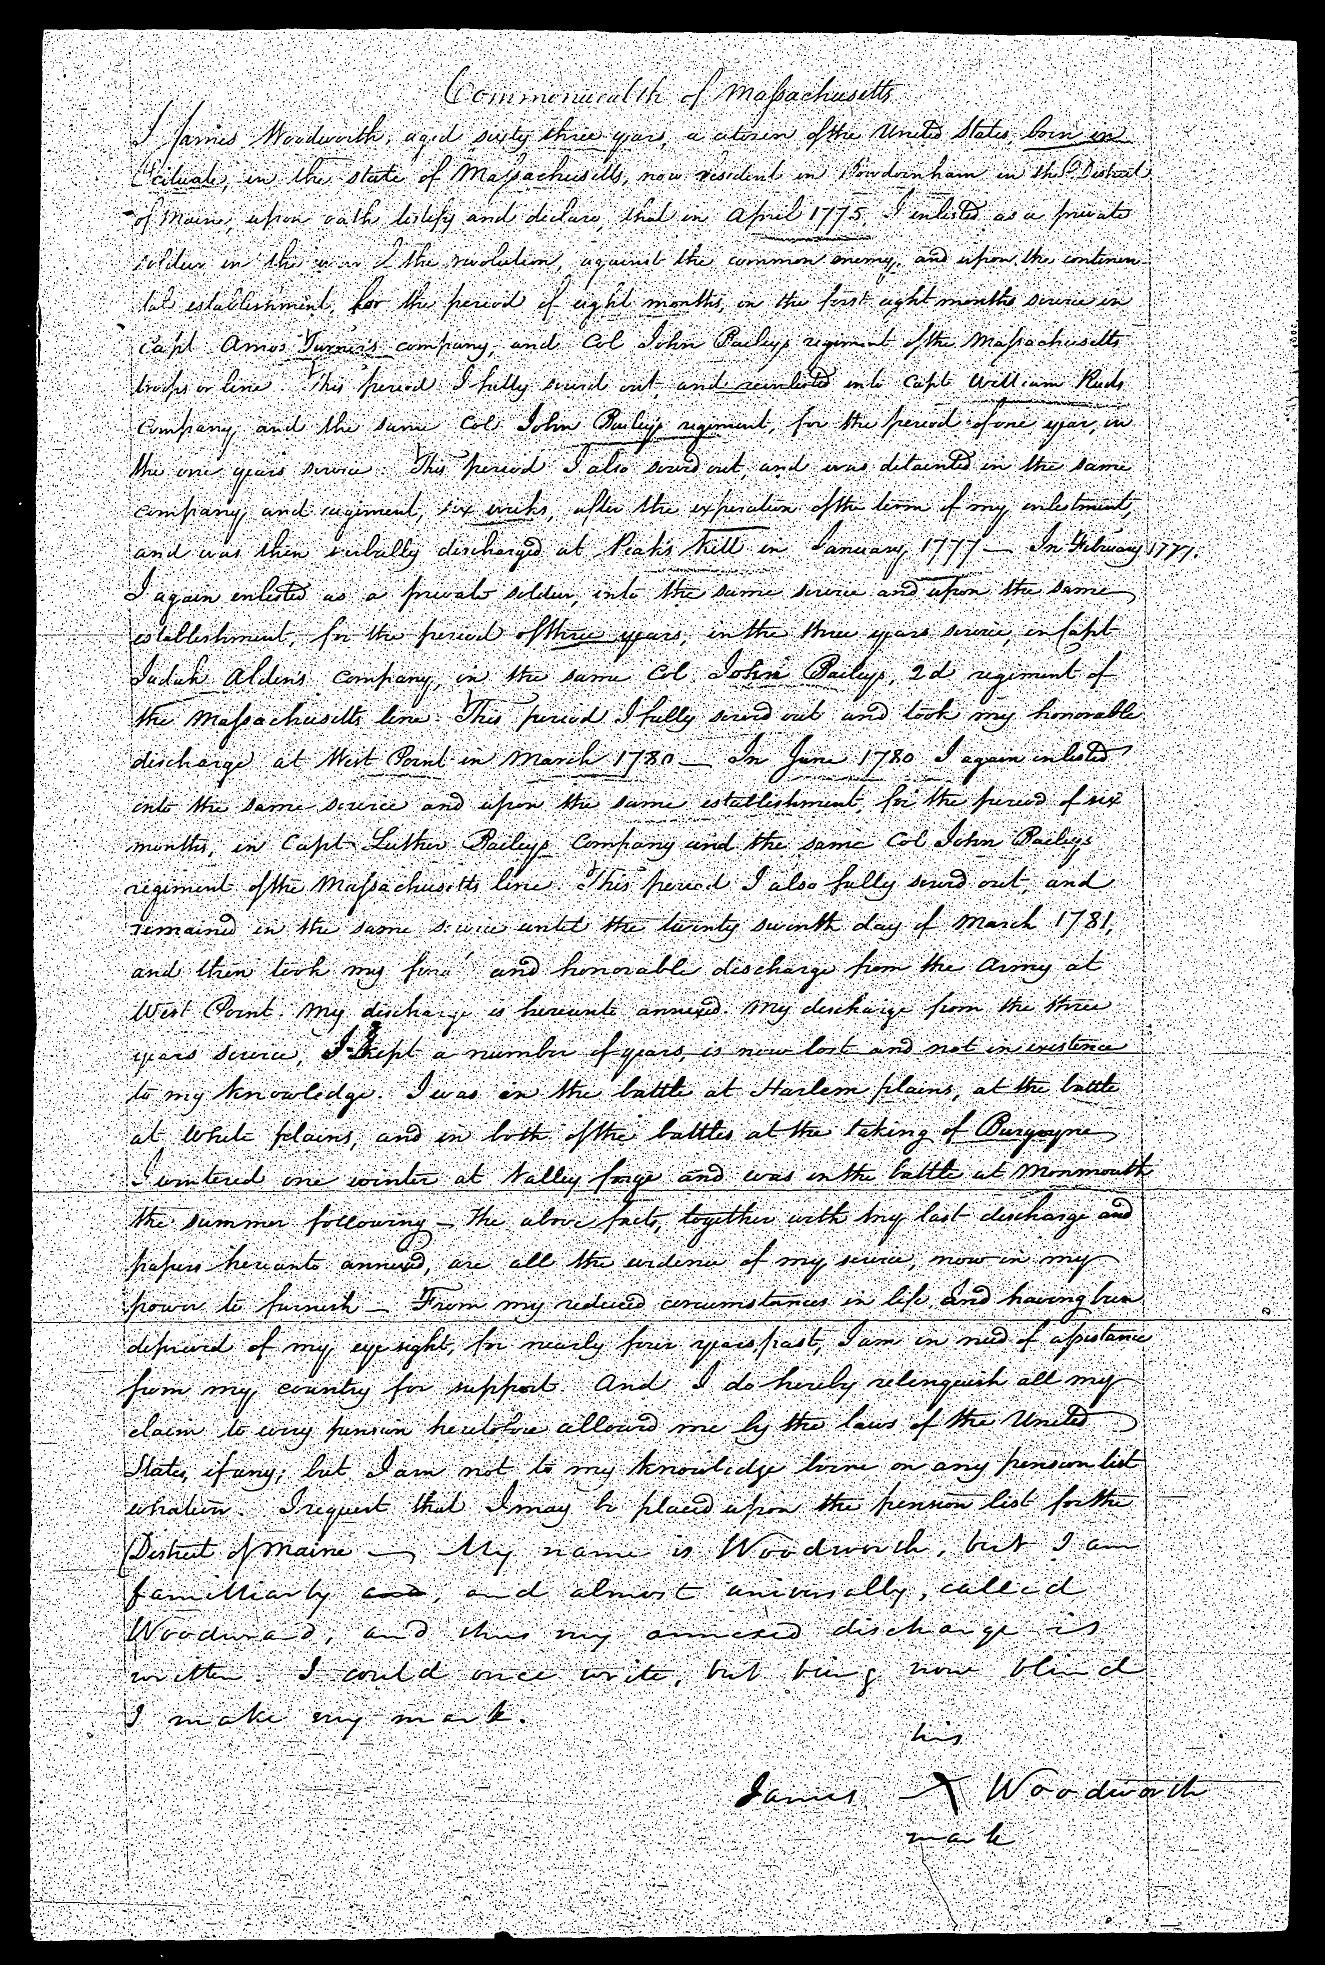 Commonwealth of Massachusetts
I James Woodworth, aged sixty three years, a citizen of the United States, born in
Scituate, in the state of Massachusetts, now resident in Bowdoinham in the District
of Maine, upon oath testify and declare, that in April 1775, I enlisted as a private
soldier in the war of the revolution, against the common enemy, and upon the continen-
tal establishment, for the period of eight months, in the first eight months service in
Capt Amos Turner's company, and Col John Baileys regiment of the Massachusetts
troops or line. This period I fully served out, and reinlisted into Capt William Reeds
company and the same Col John Baileys regiment, for the period of one year, in
the one years service. This period I also served out, and was detained in the same
company and regiment, six weeks, after the expiration of the term of my enlistment,
and was then verbally discharged at Peaks Kill in January 1777 — In February 1777.
I again enlisted as a private soldier, into the same service and upon the same
establishment, for the period of three years, in the three years service, in Capt
Judah Alden's company, in the same Col John Baileys, 2d regiment of
the Massachusetts line. This period I fully served out and took my honorable
discharge at West Point in March 1780 — In June 1780 I again enlisted
into the same service and upon the same establishment, for the period of six
months, in Capt Luther Baileys Company and the same Col John Baileys
regiment of the Massachusetts line. This period I also fully served out, and
remained in the same service until the twenty seventh day of March 1781,
and then took my final and honorable discharge from the Army at
West Point. My discharge is hereunto annexed. My discharge from the three
years service, I kept a number of years, is now lost and not in existence
to my knowledge. I was in the battle at Harlem plains, at the battle
at White plains, and in both of the battles at the taking of Burgoyne
I wintered one winter at Valley forge and was in the battle at Monmouth
the summer following — The above facts, together with my last discharge and
papers hereunto annexed, are all the evidence of my service, now in my
power to furnish — From my reduced circumstances in life and having been
deprived of my eye sight, for nearly four years past, I am in need of assistance
from my country for support. And I do hereby relinquish all my
claim to every pension heretofore allowed me by the laws of the United
States, if any; but I am not to my knowledge borne on any pension list
whatever. I request that I may be placed upon the pension list for the
District of Maine — My name is Woodworth, but I am
familliarly and, and almost universally, called
Woodward, and thus my annexed discharge is
written. I could once write, but being now blind
I make my mark.
his
James X Woodworth
mark